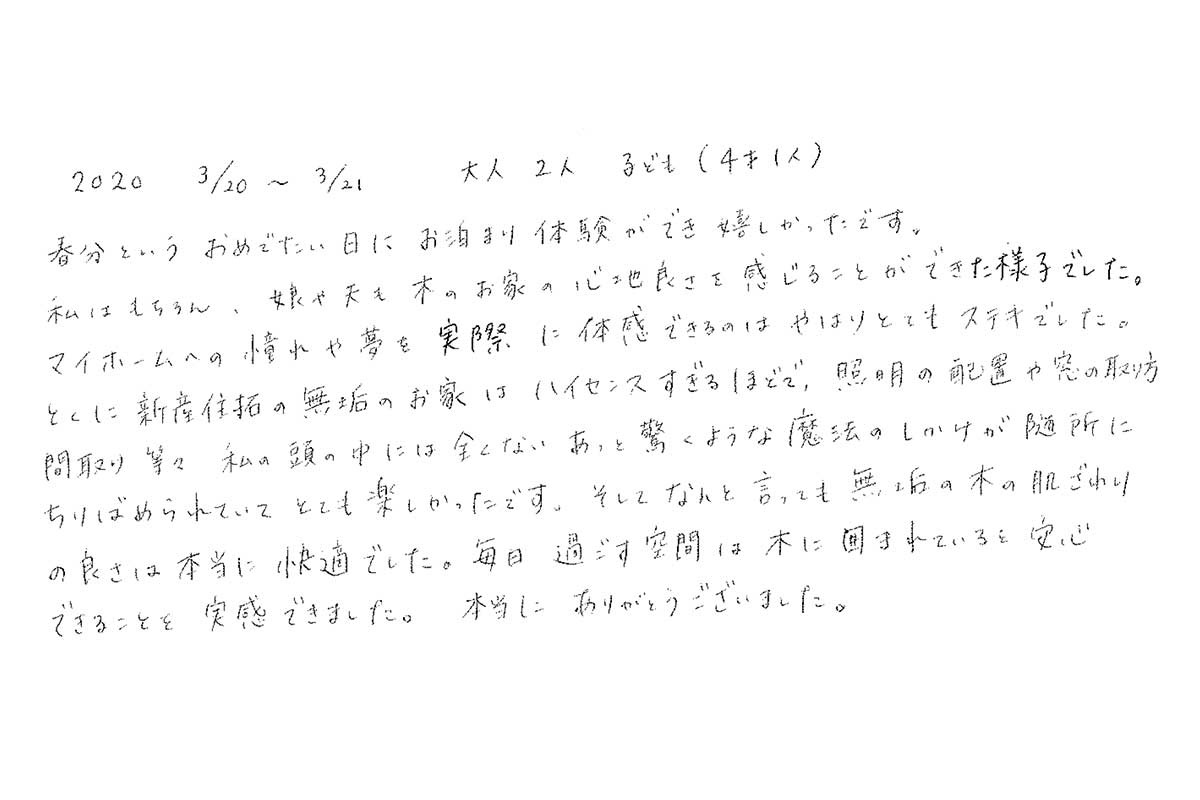 2020 3/20 〜 3/21 大人 2人 子ども (4才1人)
春分という おめでたい日に お泊まり体験ができ嬉しかったです。
私はもちろん、娘や夫も木のお家の心地良さを感じることができた様子でした。
マイホームへの憧れや夢を実際に体感できるのはやはりとてもステキでした。
とくに新産住拓の無垢のお家はハイセンスすぎるほどで、照明の配置や窓の取り方
間取り等々 私の頭の中には全くないあっと驚くような魔法のしかけが随所に
ちりばめられていてとても楽しかったです。そしてなんと言っても無垢の木の肌ざわり
の良さは本当に快適でした。毎日過ごす空間は木に囲まれていると安心
できることを実感できました。 本当にありがとうございました。